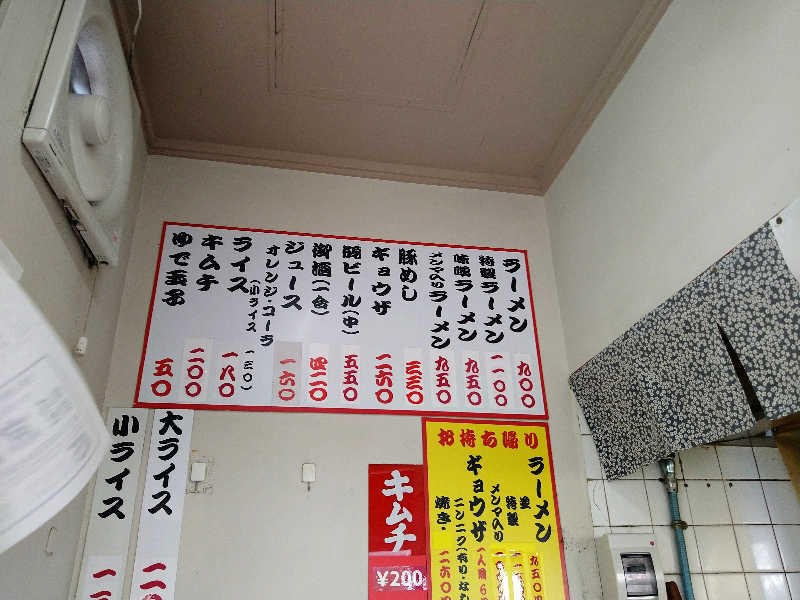 ラーメン 九〇〇
特製ラーメン 一一〇〇
味噌ラーメン 九五〇
メンマ入りラーメン 九五〇
豚めし 三三〇
ギョウザ 二六〇
瓶ビール(中) 五五〇
御酒(一合) 四二〇
ジュース 一六〇
オレンジ・コーラ
ライス 一八〇
(小ライス 一三〇)
キムチ 二〇〇
ゆで玉子 五〇
お持ち帰り
ラーメン
並 九五〇
特製
メンマ入り
ギョウザ 一人前
ニンニク(有り・な
焼き・ 二六〇
キムチ
¥200
大ライス 二
小ライス 一